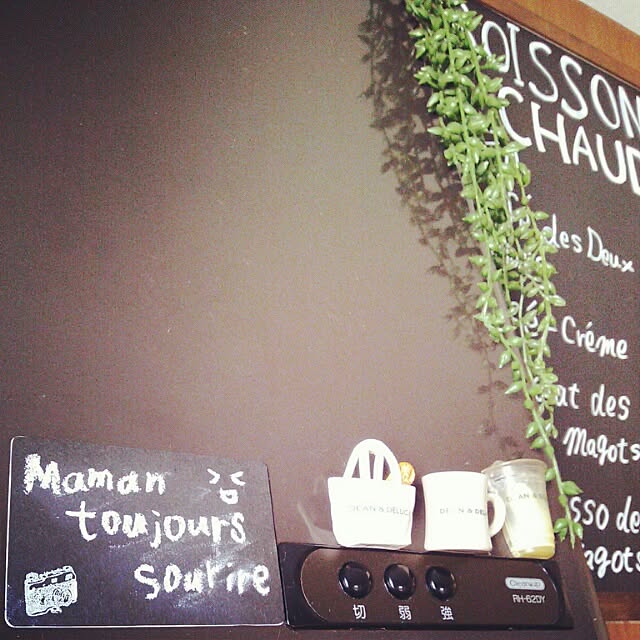 OISSON
CHAUD
des Deux
Créme
at des
Magots
sso de
agots
Maman
toujours
sourire
DEAN & DELUC
DEAN & DELU
AN & D
Cleanup
RH-62DY
切 弱 強